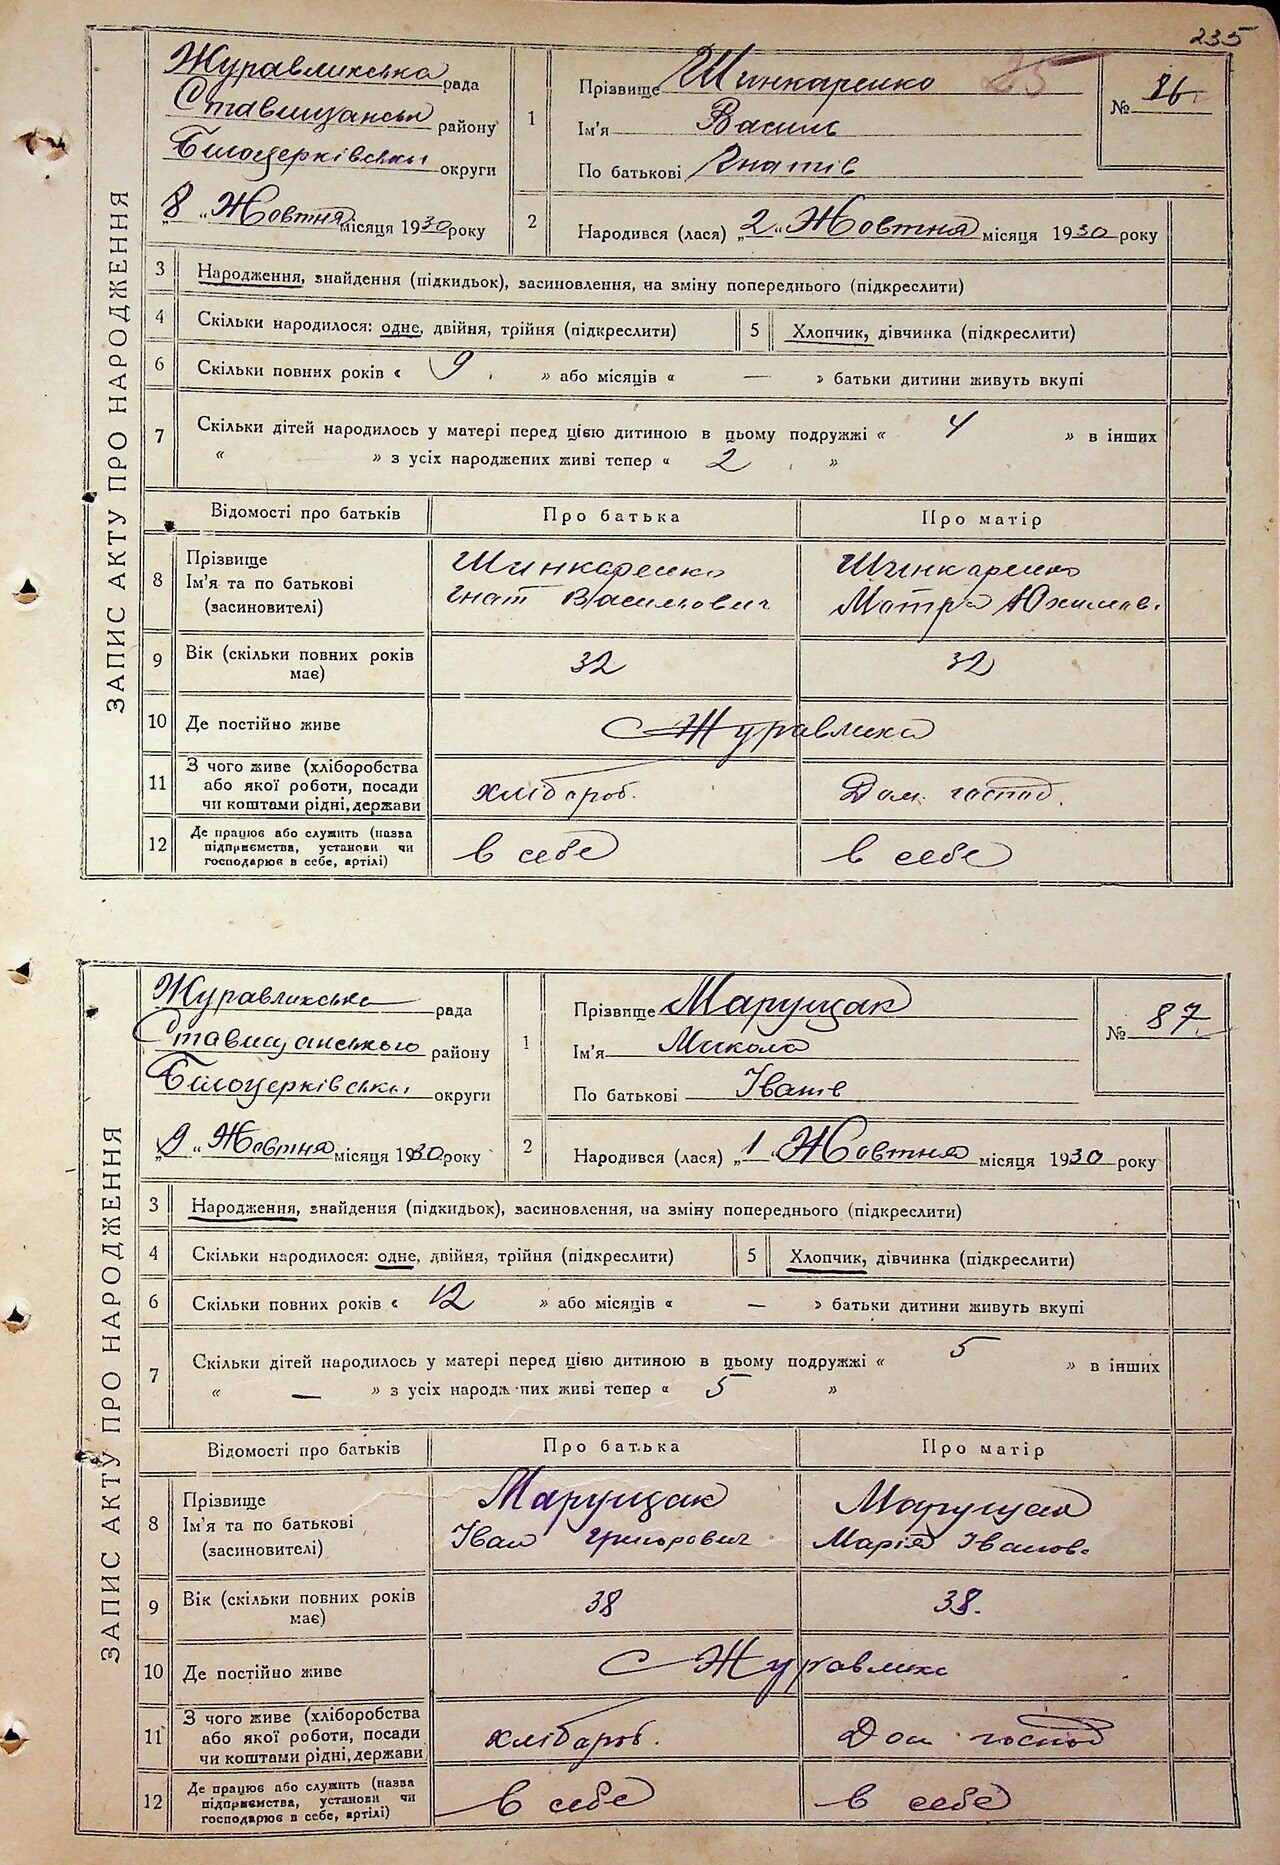 235
ЗАПИС АКТУ ПРО НАРОДЖЕННЯ
Журавликська рада
Ставищанськ району
Білоцерківськи округи
„8“ Жовтня місяця 1930 року
1
Прізвище Шинкаренко
Ім'я Василь
По батькові Гнатів
25
№ 86
2
Народився (лася) „2“ Жовтня місяця 1930 року
3 Народження, знайдення (підкидьок), засиновлення, на зміну попереднього (підкреслити)
4 Скільки народилося: одне, двійня, трійня (підкреслити) 5 Хлопчик, дівчинка (підкреслити)
6 Скільки повних років « 9 » або місяців « — » батьки дитини живуть вкупі
7 Скільки дітей народилось у матері перед цією дитиною в цьому подружжі « 4 » в інших
« » з усіх народжених живі тепер « 2 »
Відомості про батьків Про батька Про матір
8 Прізвище Ім'я та по батькові (засиновителі)
Шинкаренко Шинкаренко
Гнат Васильович Мотря Юхимов.
9 Вік (скільки повних років має) 32 32
10 Де постійно живе С Журавлиха
11 З чого живе (хліборобства або якої роботи, посади чи коштами рідні, держави хлібароб. Дом. господ.
12 Де працює або служить (назва підприємства, установи чи господарює в себе, артілі) в себе в себе
ЗАПИС АКТУ ПРО НАРОДЖЕННЯ
Журавликська рада
Ставищанського району
Білоцерківськи округи
„9“ Жовтня місяця 1930 року
1
Прізвище Марущак
Ім'я Микола
По батькові Іванів
№ 87
2
Народився (лася) „1“ Жовтня місяця 1930 року
3 Народження, знайдення (підкидьок), засиновлення, на зміну попереднього (підкреслити)
4 Скільки народилося: одне, двійня, трійня (підкреслити) 5 Хлопчик, дівчинка (підкреслити)
6 Скільки повних років « 12 » або місяців « — » батьки дитини живуть вкупі
7 Скільки дітей народилось у матері перед цією дитиною в цьому подружжі « 5 » в інших
« — » з усіх народж них живі тепер « 5 »
Відомості про батьків Про батька Про матір
8 Прізвище Ім'я та по батькові (засиновителі)
Марущак Марущак
Іван Григорович Марія Іванов.
9 Вік (скільки повних років має) 38 38.
10 Де постійно живе С Журавлиха
11 З чого живе (хліборобства або якої роботи, посади чи коштами рідні, держави хлібароб. Дом господ
12 Де працює або служить (назва підприємства, установи чи господарює в себе, артілі) в себе в себе